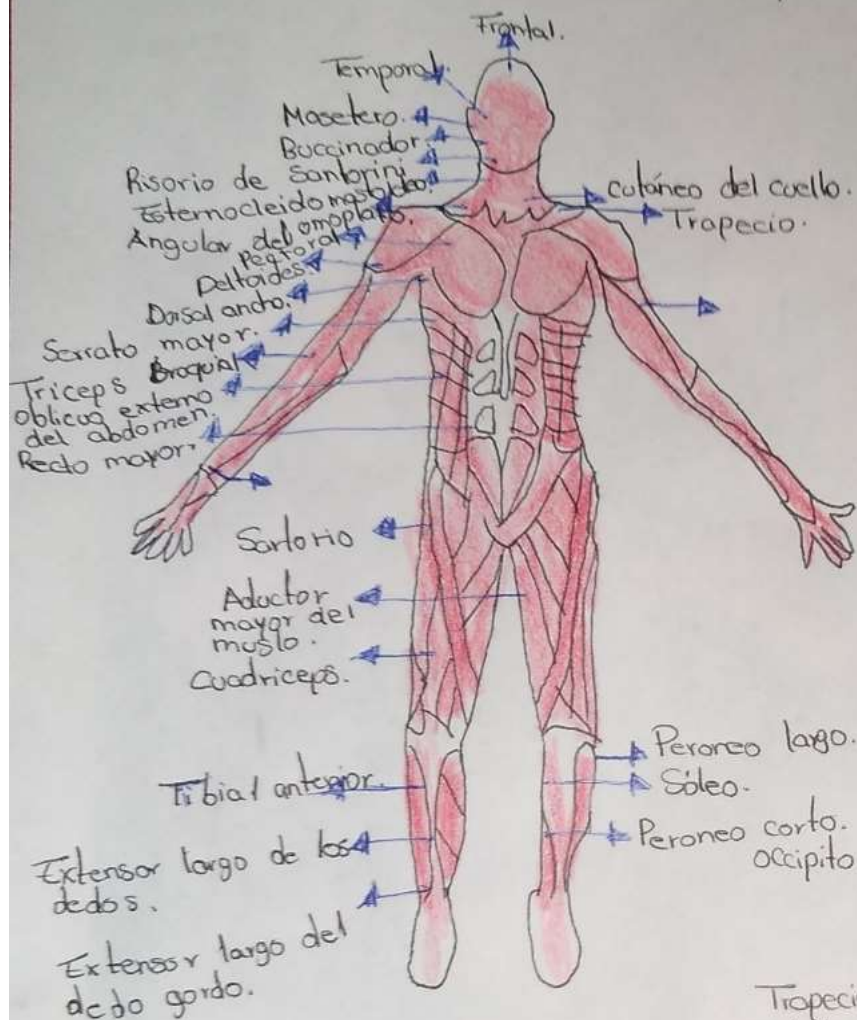 Frontal.
Temporal.
Masetero.
Buccinador.
Risorio de Santorini
Esternocleidomastoideo.
Angular del omoplato.
Pectoral
Deltoides.
Dorsal ancho.
Serrato mayor.
Triceps Braquial
oblicuo externo
del abdomen.
Recto mayor.
Sartorio
Aductor
mayor del
muslo.
Cuadriceps.
Tibial anterior.
Extensor largo de los
dedos.
Extensor largo del
dedo gordo.
cutáneo del cuello.
Trapecio.
Peroneo largo.
Sóleo.
Peroneo corto.
occipito
Trapeci